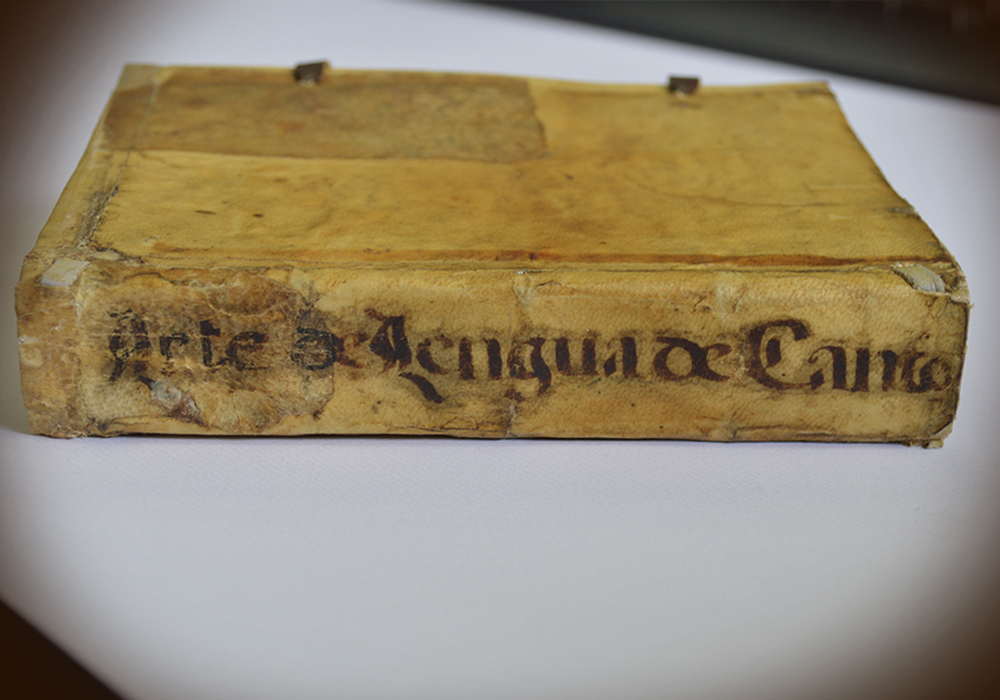 Arte de Lengua de Canto